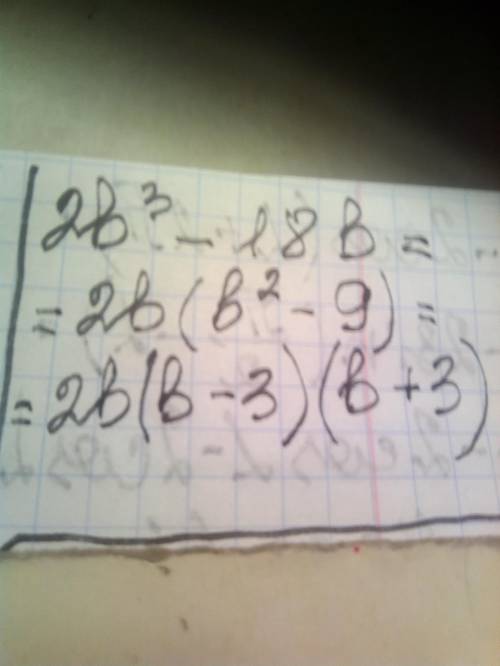 2b³ - 18b =
= 2b(b² - 9) =
= 2b(b - 3)(b + 3)